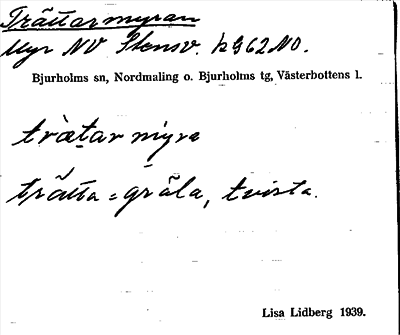 Trättarmyran
Myr NV Stensv. kG62NO.
Bjurholms sn, Nordmaling o. Bjurholms tg, Västerbottens l.
trætar myra
trätta = gräla, tvista.
Lisa Lidberg 1939.